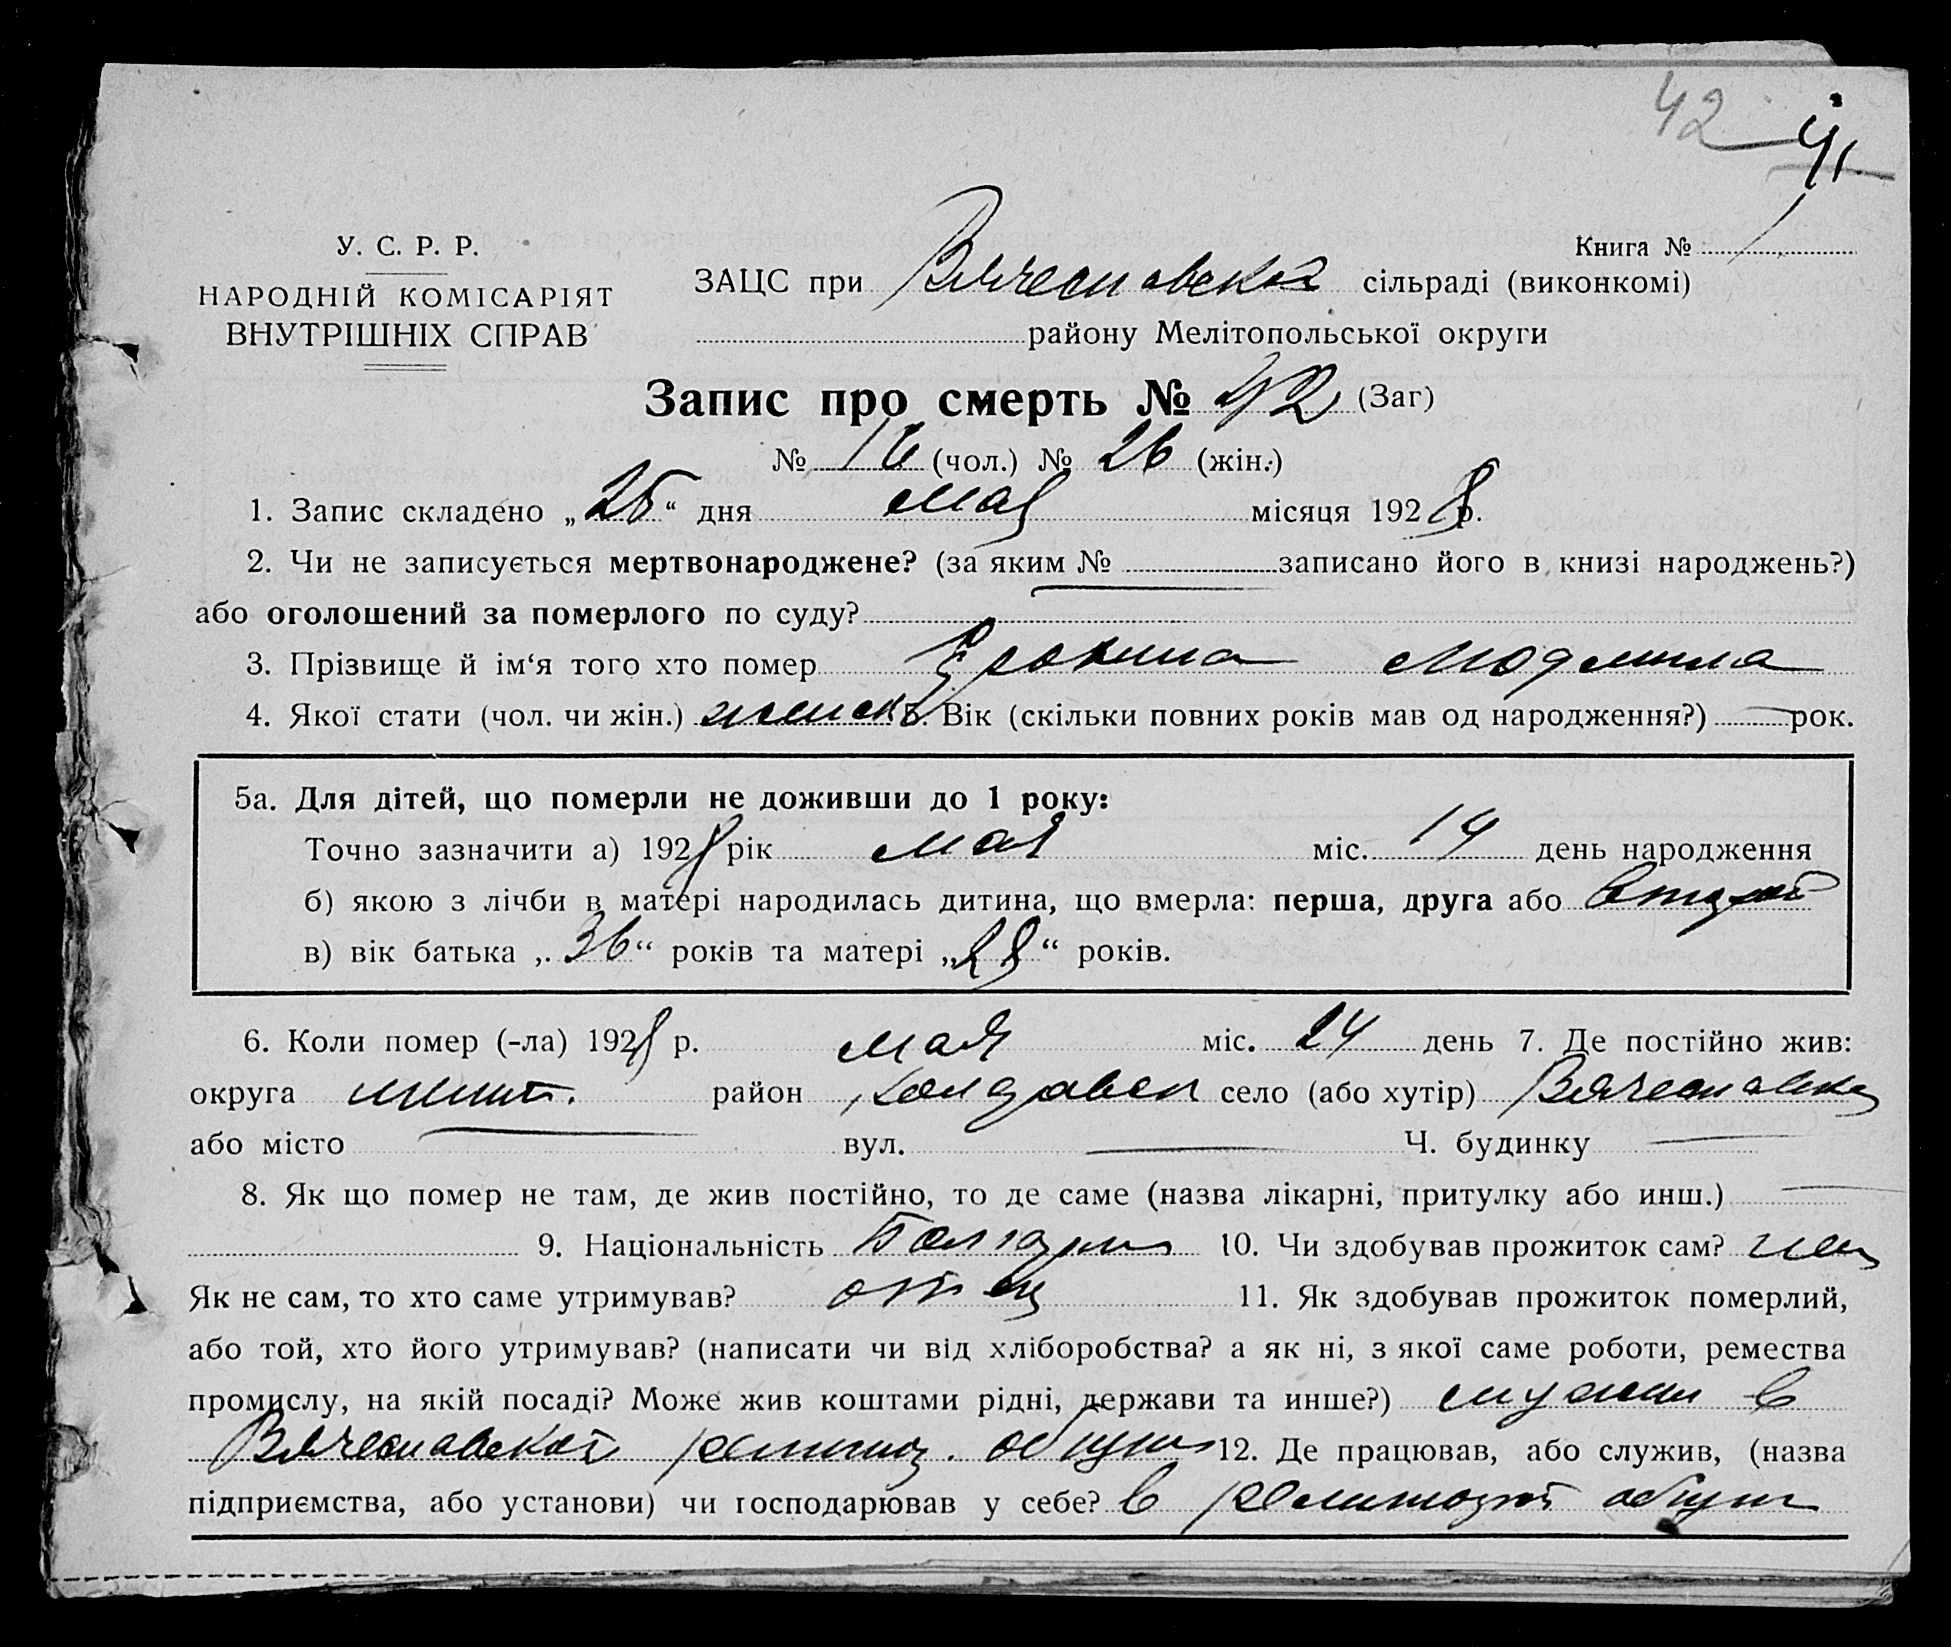 42 41
У. С. Р. Р.
Книга № 1
НАРОДНІЙ КОМІСАРІЯТ
ЗАЦС при Вячеславской сільраді (виконкомі)
ВНУТРІШНІХ СПРАВ
району Мелітопольської округи
Запис про смерть № 42 (Заг)
№ 16 (чол.) № 26 (жін.)
1. Запис складено „25“ дня мая місяця 1928 р.
2. Чи не записується мертвонароджене? (за яким № записано його в книзі народжень?)
або оголошений за померлого по суду?
3. Прізвище й ім‘я того хто помер Людмила
4. Якої стати (чол. чи жін.) женск. Вік (скільки повних років мав од народження?) — рок.
5а. Для дітей, що померли не доживши до 1 року:
Точно зазначити а) 1928 рік мая міс. 14 день народження
б) якою з лічби в матері народилась дитина, що вмерла: перша, друга або второй
в) вік батька „36“ років та матері „28“ років.
6. Коли помер (-ла) 1928 р. мая міс. 24 день 7. Де постійно жив:
округа район село (або хутір) Вячеславка
або місто — вул. — Ч. будинку —
8. Як що помер не там, де жив постійно, то де саме (назва лікарні, притулку або инш.) —
9. Національність Болгары 10. Чи здобував прожиток сам? нет
Як не сам, то хто саме утримував? отец 11. Як здобував прожиток померлий,
або той, хто його утримував? (написати чи від хліборобства? а як ні, з якої саме роботи, ремества
промислу, на якій посаді? Може жив коштами рідні, держави та инше?) служил в
Вячеславской религиоз. общин 12. Де працював, або служив, (назва
підприємства, або установи) чи господарював у себе? в религиозной общин